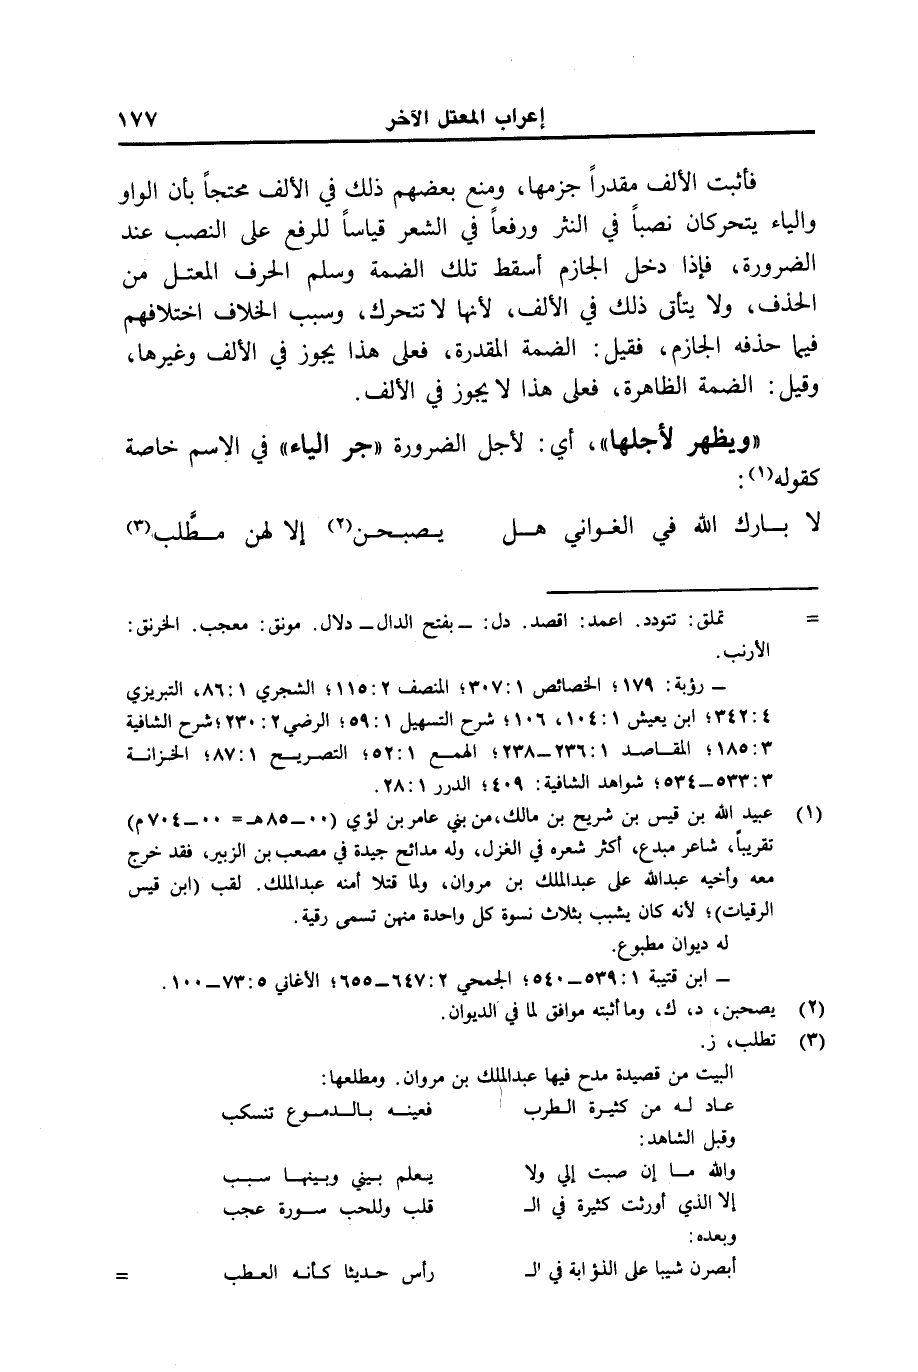 إعراب المعتل الآخر ١٧٧
فأثبت الألف مقدراً جزمها، ومنع بعضهم ذلك في الألف محتجاً بأن الواو
والياء يتحركان نصباً في النثر ورفعاً في الشعر قياساً للرفع على النصب عند
الضرورة، فإذا دخل الجازم أسقط تلك الضمة وسلم الحرف المعتل من
الحذف، ولا يتأتى ذلك في الألف، لأنها لا تتحرك، وسبب الخلاف اختلافهم
فيما حذفه الجازم، فقيل: الضمة المقدرة، فعلى هذا يجوز في الألف وغيرها،
وقيل: الضمة الظاهرة، فعلى هذا لا يجوز في الألف.
«ويظهر لأجلها»، أي: لأجل الضرورة «جر الياء» في الإسم خاصة
كقوله(١):
لا بـارك الله في الغـواني هـل يـصبـحـن(٢) إلا لهن مـطَّلب(٣)
= تملق: تتودد. اعمد: اقصد. دل: ـ بفتح الدال ـ دلال. مونق: معجب. الخرنق:
الأرنب.
ـ رؤبة: ١٧٩؛ الخصائص ١:٣٠٧؛ المنصف ٢:١١٥؛ الشجري ١:٨٦، التبريزي
٤:٣٤٢؛ ابن يعيش ١:١٠٤، ١٠٦؛ شرح التسهيل ١:٥٩؛ الرضي ٢:٢٣٠؛ شرح الشافية
٣:١٨٥؛ المقـاصـد ١:٢٣٦ــ٢٣٨؛ الهمـع ١:٥٢؛ التصـريـح ١:٨٧؛ الخـزانـة
٣:٥٣٣ــ٥٣٤؛ شواهد الشافية: ٤٠٩؛ الدرر ١:٢٨.
(١) عبيد الله بن قيس بن شريح بن مالك، من بني عامر بن لؤي (٠٠ــ٨٥هـ = ٠٠ــ٧٠٤م)
تقريباً، شاعر مبدع، أكثر شعره في الغزل، وله مدائح جيدة في مصعب بن الزبير، فقد خرج
معه وأخيه عبدالله على عبدالملك بن مروان، ولما قتلا أمنه عبدالملك. لقب (ابن قيس
الرقيات)؛ لأنه كان يشبب بثلاث نسوة كل واحدة منهن تسمى رقية.
له ديوان مطبوع.
ـ ابن قتيبة ١:٥٣٩ــ٥٤٠؛ الجمحي ٢:٦٤٧ــ٦٥٥؛ الأغاني ٥:٧٣ــ١٠٠.
(٢) يصحبن، د، ك، وما أثبته موافق لما في الديوان.
(٣) تطلب، ز.
البيت من قصيدة مدح فيها عبدالملك بن مروان. ومطلعها:
عـاد لـه من كثيـرة الـطرب فعينـه بـالـدمـوع تنسكب
وقبل الشاهد:
والله مـا إن صبت إلي ولا يـعلم بـيني وبـينهـا سبـب
إلا الذي أورثت كثيرة في الـ قلب وللحب سـورة عجب
وبعده:
أبصرن شيبا على الذؤابة في الـ رأس حـديثا كـأنـه العـطب
=